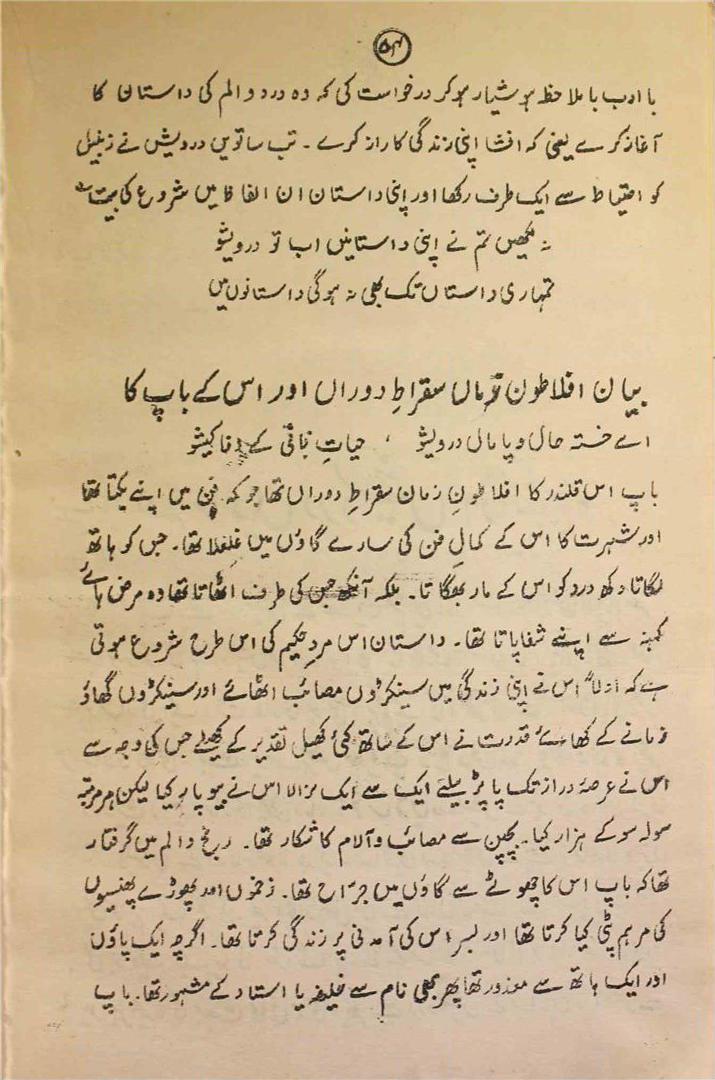 ۵۴
با ادب با ملاحظہ ہوشیار ہوکر درخواست کی کہ وہ درد و الم کی داستان کا
آغاز کرے یعنی کہ افشا اپنی زندگی کا راز کرے ۔ تب ساتویں درویش نے زنبیل
کو احتیاط سے ایک طرف رکھا اور اپنی داستان ان الفاظ میں شروع کی بیت
نہ لکھیں تم نے اپنی داستانیں اب تو درویشو
تمہاری داستاں تک بھی نہ ہوگی داستانوں میں
بیان افلاطون زماں سقراطِ دوراں اور اس کے باپ کا
اے خستہ حال و پامال درویشو ، حیاتِ نباتی کے وفا کیشو
باپ اس قلندر کا افلاطونِ زمان سقراطِ دوراں تھا جو کہ فن میں اپنے یکتا تھا
اور شہرت کا اس کے کمالِ فن کی سارے گاؤں میں غلغلا تھا ۔ جس کو ہاتھ
لگاتا دکھ درد کو اس کے مار بھگاتا ۔ بلکہ آنکھ جس کی طرف اٹھاتا تھا وہ مرض ہائے
کہنہ سے اپنے شفا پاتا تھا ۔ داستان اس مردِ حکیم کی اس طرح شروع ہوتی
ہے کہ اولاً اس نے اپنی زندگی میں سینکڑوں مصائب اٹھائے اور سینکڑوں گھاؤ
زمانے کے کھائے قدرت نے اس کے ساتھ کئی کھیل تقدیر کے کھیلے جس کی وجہ سے
اس نے عرصۂ دراز تک پاپڑ بیلے ایک سے ایک نرالا اس نے بیوپار کیا لیکن ہر مرتبہ
سولہ سو کے ہزار کیا ۔ بچپن سے مصائب و آلام کا شکار تھا ۔ رنج و الم میں گرفتار
تھا کہ باپ اس کا چھوٹے سے گاؤں میں جراح تھا ۔ زخموں اور پھوڑے پھنسیوں
کی مرہم پٹی کیا کرتا تھا اور بسر اس کی آمدنی پر زندگی کرتا تھا ۔ اگرچہ ایک پاؤں
اور ایک ہاتھ سے معذور تھا پھر بھی نام سے خلیفہ یا استاد کے مشہور تھا ۔ باپ